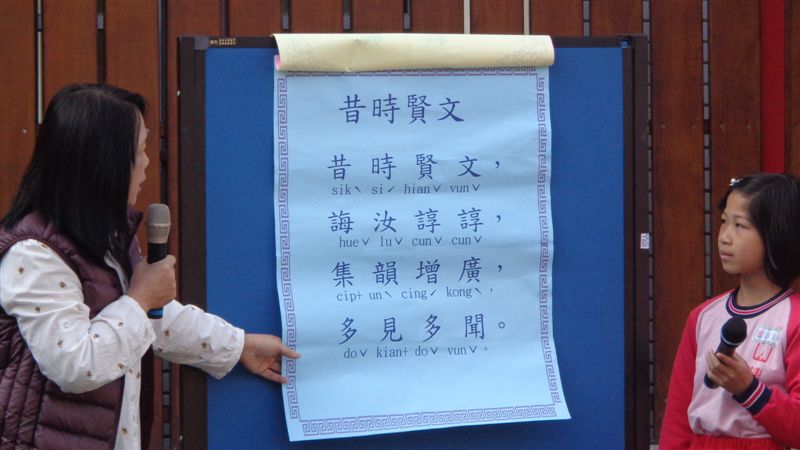 昔時賢文
昔時賢文，
sikˋ siˊ hianˇ vunˇ
誨汝諄諄，
hueˇ luˇ cunˇ cunˇ
集韻增廣，
cip+ unˋ cingˊ kongˋ，
多見多聞。
doˇ kian+ doˇ vunˇ。